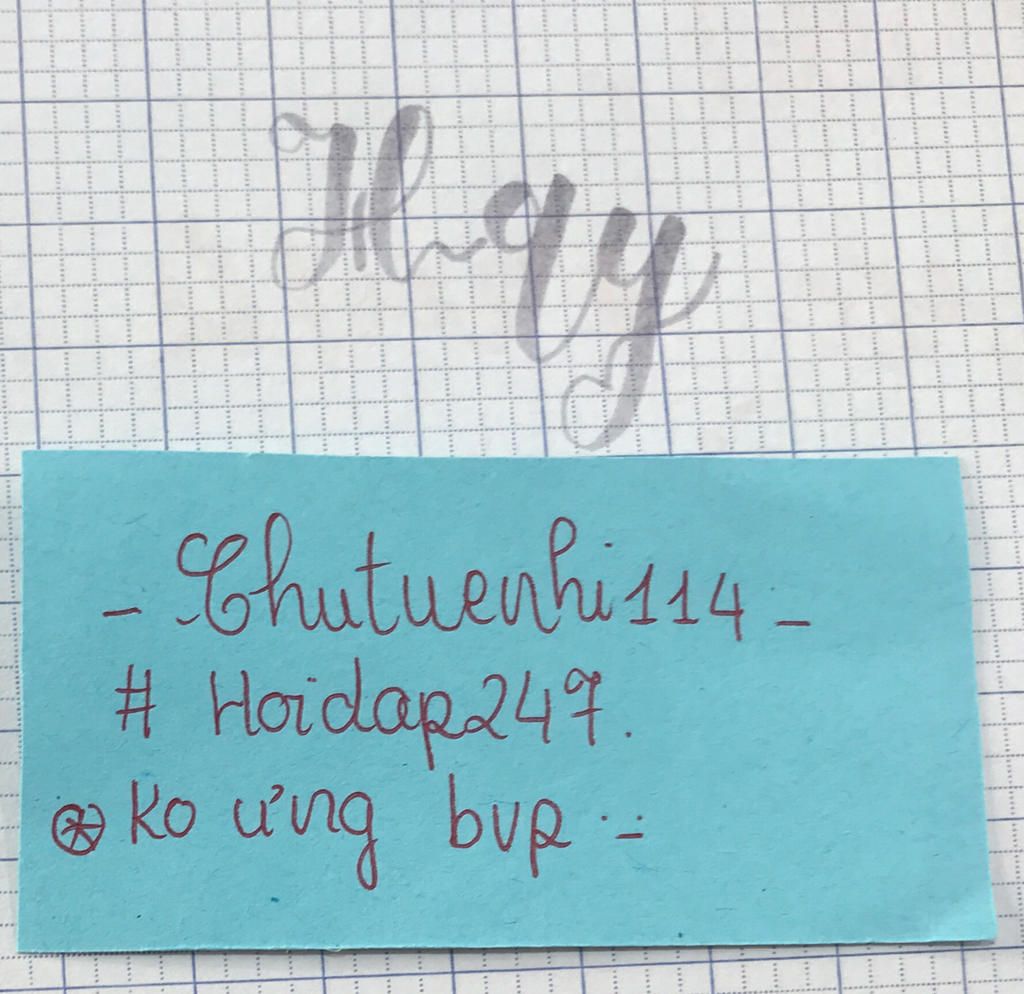 H_qy
- Thutuenhi114 -
# Hoidap247.
⊛ Ko ưng bvp :-